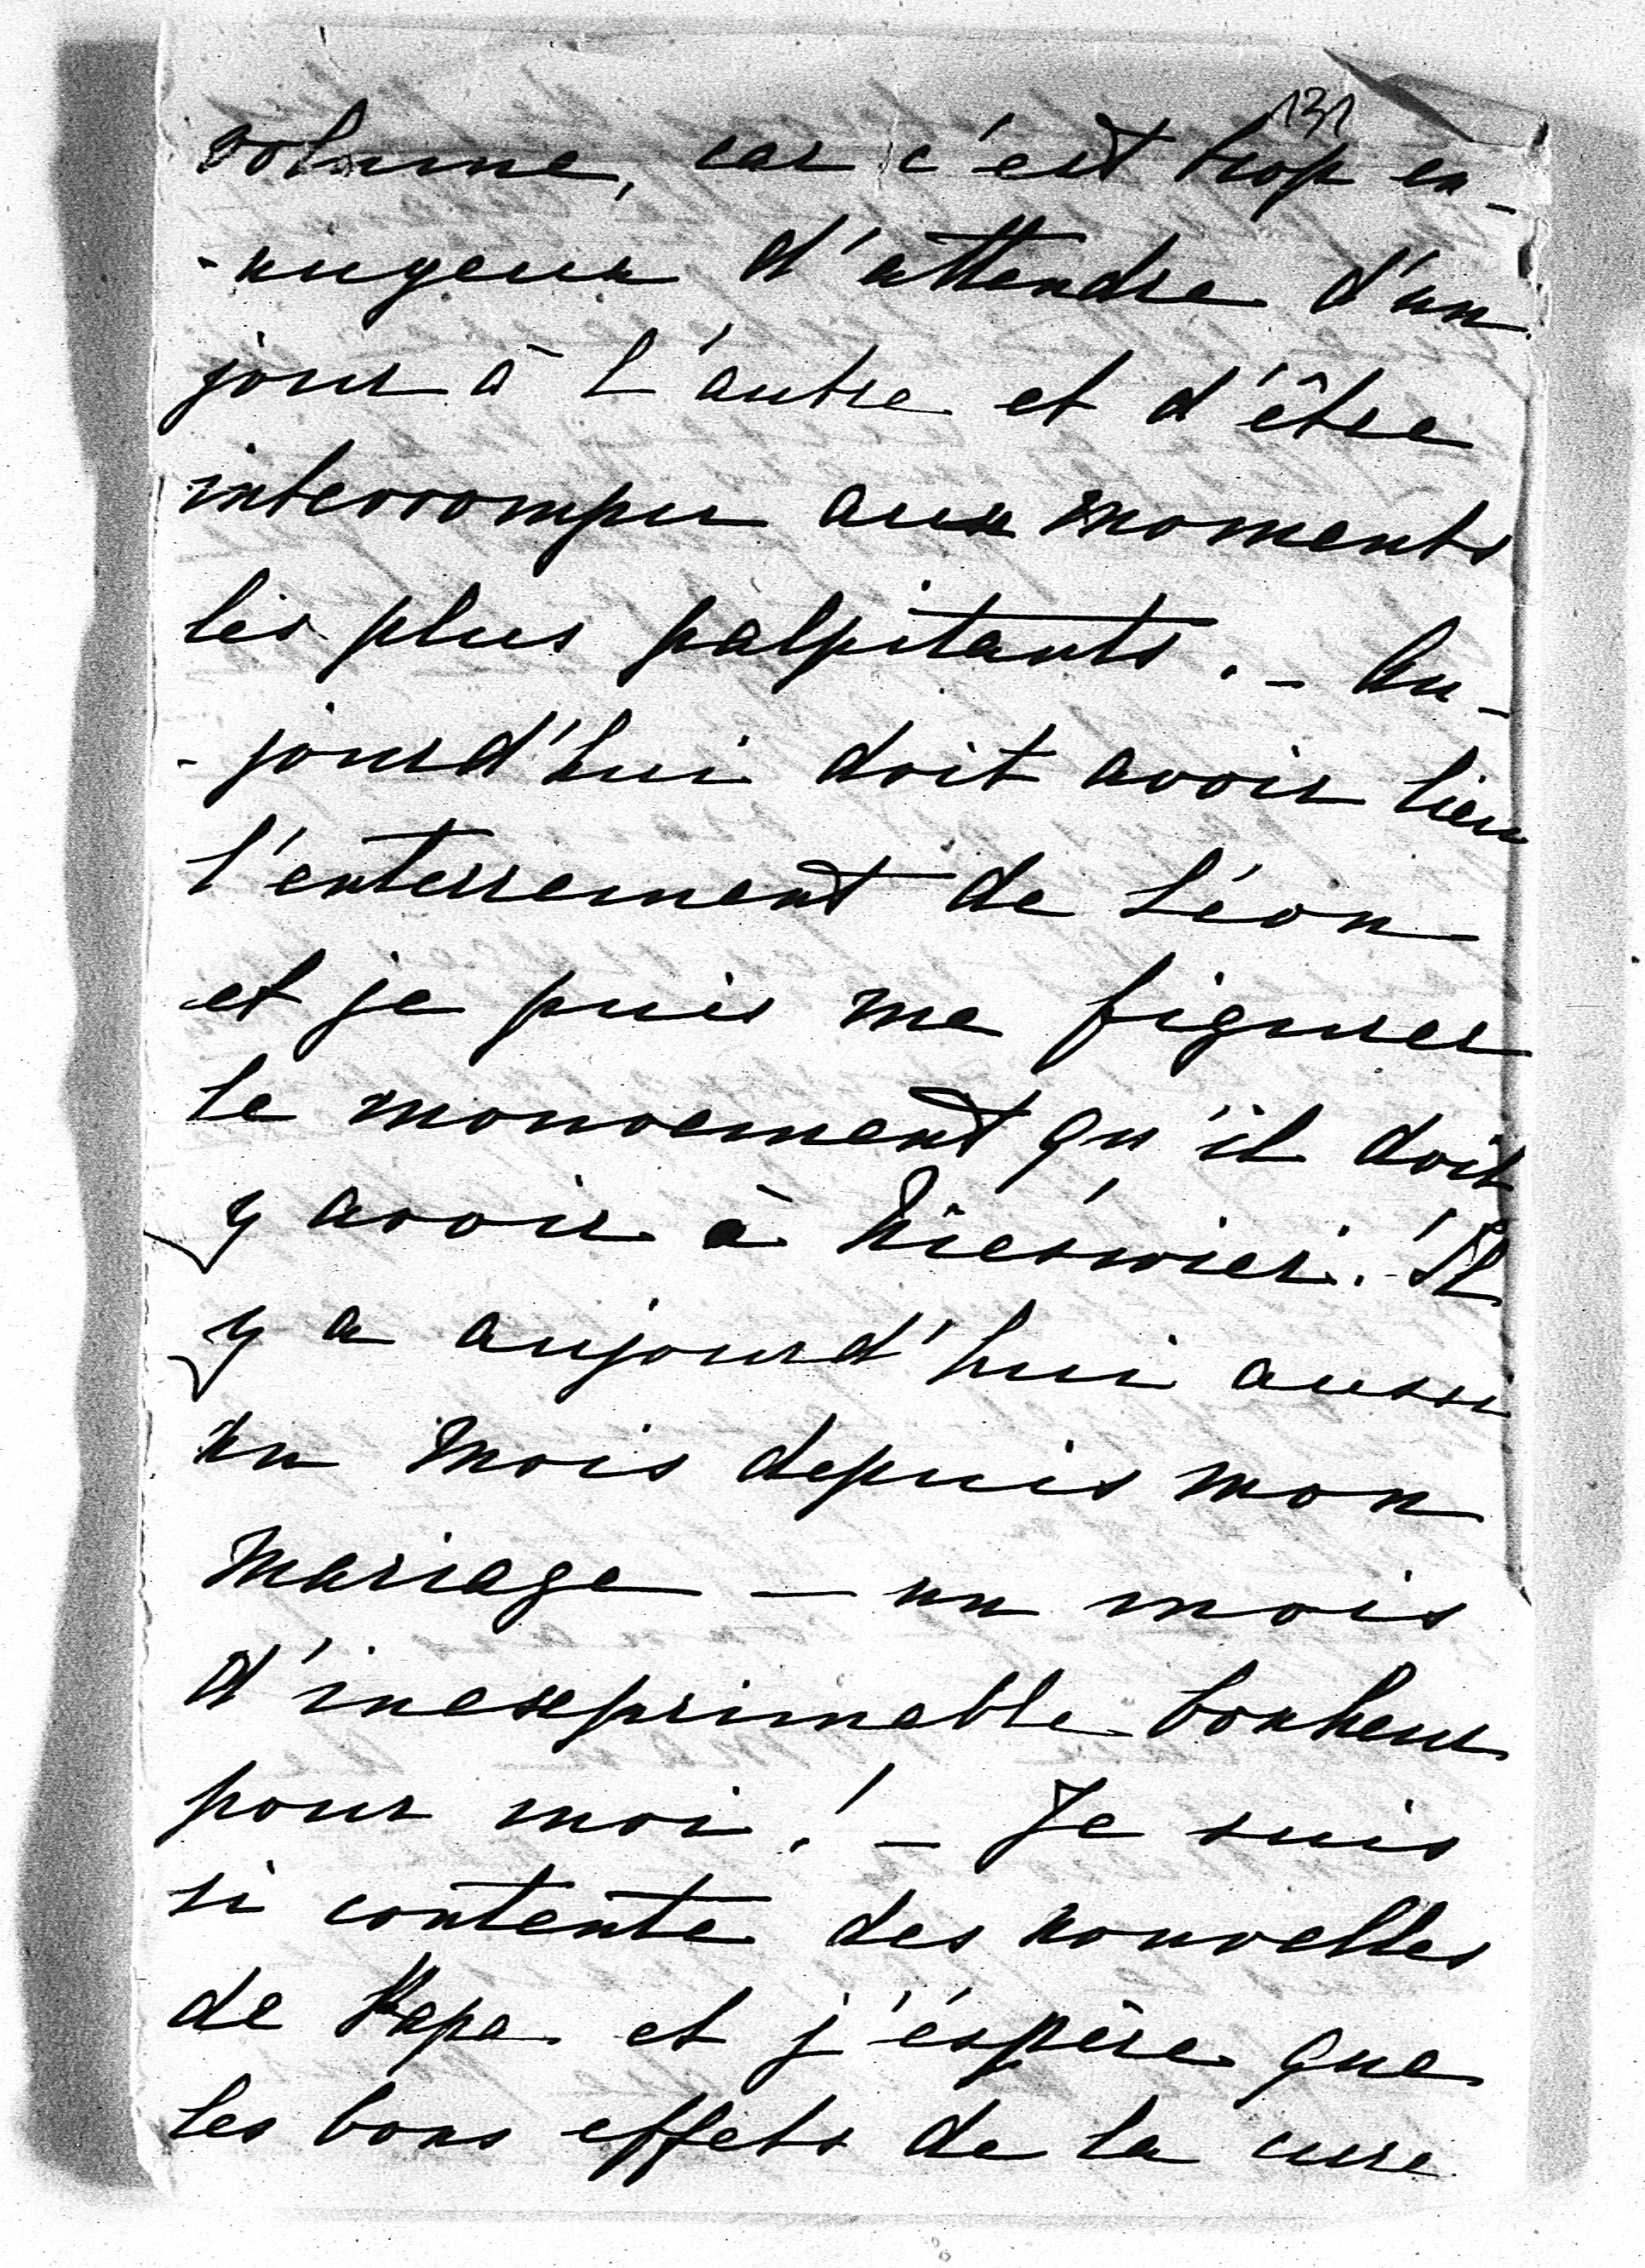 131
volume, car c'est trop en-
-nuyeux d'attendre d'un
jour à l'autre et d'être
interrompu aux moments
les plus palpitants. - Au-
-jourd'hui doit avoir lieu
l'enterrement de Léon
et je puis me figurer
le mouvement qu'il doit
y avoir à Nieśwież. Il
y a aujourd'hui aussi
un mois depuis mon
mariage — un mois
d'inexprimable bonheur
pour moi! - Je suis
si contente des nouvelles
de Papa et j'éspère que
les bons effets de la cure